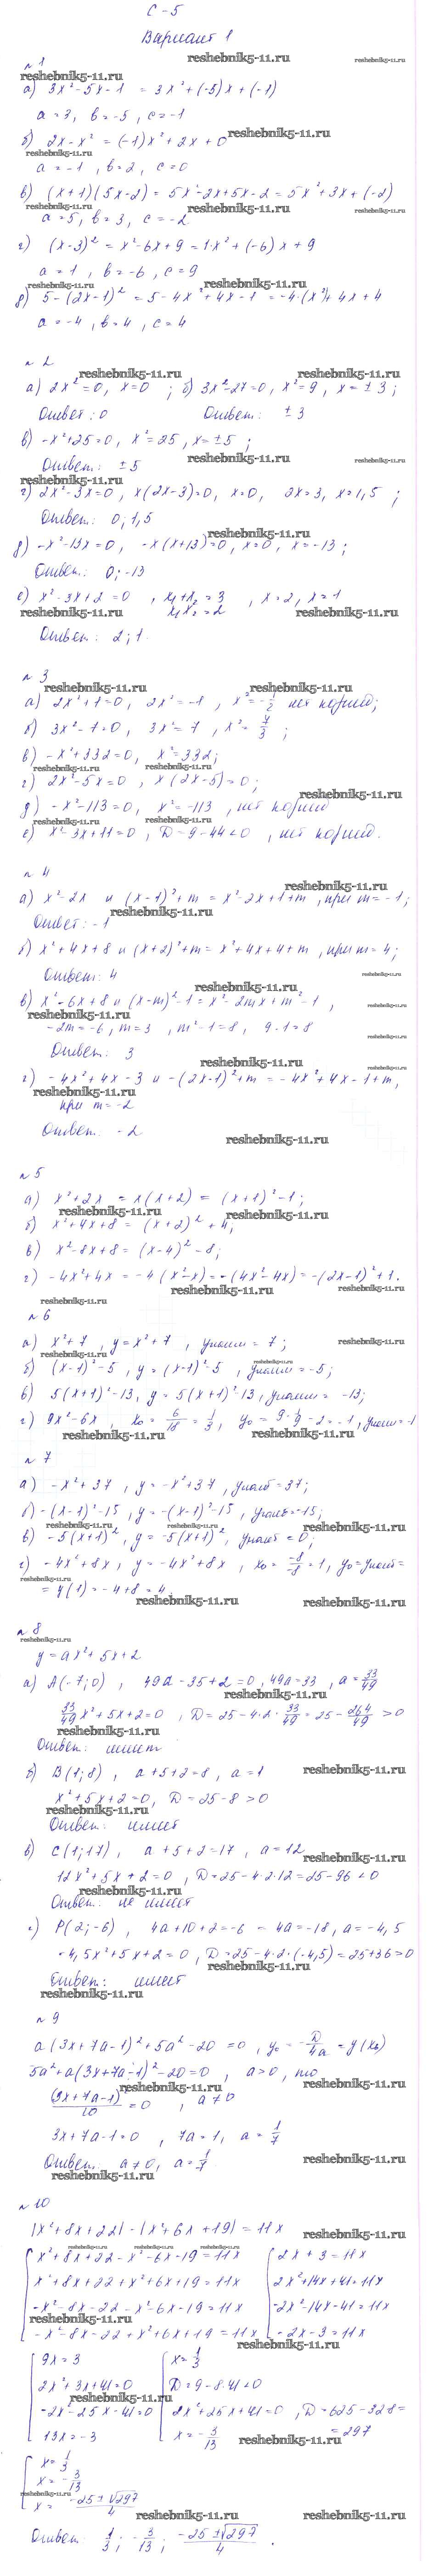 С-5
Вариант 1
№1
а) 3x² - 5x - 1 = 3x² + (-5)x + (-1)
a = 3, b = -5, c = -1
б) 2x - x² = (-1)x² + 2x + 0
a = -1, b = 2, c = 0
в) (x+1)(5x-2) = 5x² - 2x + 5x - 2 = 5x² + 3x + (-2)
a = 5, b = 3, c = -2
г) (x-3)² = x² - 6x + 9 = 1·x² + (-6)x + 9
a = 1, b = -6, c = 9
д) 5 - (2x-1)² = 5 - 4x² + 4x - 1 = -4·(x²) + 4x + 4
a = -4, b = 4, c = 4
№2
а) 2x² = 0, x = 0 ; б) 3x² - 27 = 0, x² = 9, x = ±3;
Ответ: 0 Ответ: ±3
в) -x² + 25 = 0, x² = 25, x = ±5;
Ответ: ±5
г) 2x² - 3x = 0, x(2x-3) = 0, x = 0, 2x = 3, x = 1,5 ;
Ответ: 0; 1,5
д) -x² - 13x = 0, -x(x+13) = 0, x = 0, x = -13;
Ответ: 0; -13
е) x² - 3x + 2 = 0, x₁ + x₂ = 3, x = 2, x = 1
x₁x₂ = 2
Ответ: 2; 1
№3
а) 2x² + 1 = 0, 2x² = -1, x² = -1/2 нет корней;
б) 3x² - 7 = 0, 3x² = 7, x² = 7/3 ;
в) -x² + 332 = 0, x² = 332;
г) 2x² - 5x = 0, x(2x-5) = 0;
д) -x² - 113 = 0, x² = -113, нет корней
е) x² - 3x + 11 = 0, D = 9 - 44 < 0, нет корней.
№4
а) x² - 2x и (x-1)² + m = x² - 2x + 1 + m, при m = -1;
Ответ: -1
б) x² + 4x + 8 и (x+2)² + m = x² + 4x + 4 + m, при m = 4;
Ответ: 4
в) x² - 6x + 8 и (x-m)² - 1 = x² - 2mx + m² - 1 ,
-2m = -6, m = 3, m² - 1 = 8, 9 - 1 = 8
Ответ: 3
г) -4x² + 4x - 3 и -(2x-1)² + m = -4x² + 4x - 1 + m,
при m = -2
Ответ: -2
№5
а) x² + 2x = x(x+2) = (x+1)² - 1;
б) x² + 4x + 8 = (x+2)² + 4;
в) x² - 8x + 8 = (x-4)² - 8;
г) -4x² + 4x = -4(x² - x) = -(4x² - 4x) = -(2x-1)² + 1.
№6
а) x² + 7, y = x² + 7, yнаим = 7;
б) (x-1)² - 5, y = (x-1)² - 5, yнаим = -5;
в) 5(x+1)² - 13, y = 5(x+1)² - 13, yнаим = -13;
г) 9x² - 6x, x₀ = 6/18 = 1/3, y₀ = 9·1/9 - 2 = -1, yнаим = -1
№7
а) -x² + 37, y = -x² + 37, yнаиб = 37;
б) -(x-1)² - 15, y = -(x-1)² - 15, yнаиб = -15;
в) -5(x+1)², y = -5(x+1)², yнаиб = 0;
г) -4x² + 8x, y = -4x² + 8x, x₀ = -8/-8 = 1, y₀ = yнаиб =
= y(1) = -4 + 8 = 4.
№8
y = ax² + 5x + 2
а) A(-7; 0), 49a - 35 + 2 = 0, 49a = 33, a = 33/49
33/49 x² + 5x + 2 = 0, D = 25 - 4·2·33/49 = 25 - 264/49 > 0
Ответ: имеет
б) B(1; 8), a + 5 + 2 = 8, a = 1
x² + 5x + 2 = 0, D = 25 - 8 > 0
Ответ: имеет
в) C(1; 17), a + 5 + 2 = 17, a = 12
12x² + 5x + 2 = 0, D = 25 - 4·2·12 = 25 - 96 < 0
Ответ: не имеет
г) P(2; -6), 4a + 10 + 2 = -6 - 4a = -18, a = -4,5
-4,5x² + 5x + 2 = 0, D = 25 - 4·2·(-4,5) = 25 + 36 > 0
Ответ: имеет
№9
a(3x + 7a - 1)² + 5a² - 20 = 0, y₀ = -D/4a = y(x₀)
5a² + a(3x + 7a - 1)² - 20 = 0, a > 0, то
(3x + 7a - 1)/10 = 0, a ≠ 0
3x + 7a - 1 = 0, 7a = 1, a = 1/7
Ответ: a ≠ 0, a = 1/7
№10
|x² + 8x + 22| - |x² + 6x + 19| = 11x
x² + 8x + 22 - x² - 6x - 19 = 11x 2x + 3 = 11x
x² + 8x + 22 + x² + 6x + 19 = 11x 2x² + 14x + 41 = 11x
-x² - 8x - 22 - x² - 6x - 19 = 11x -2x² - 14x - 41 = 11x
-x² - 8x - 22 + x² + 6x + 19 = 11x -2x - 3 = 11x
9x = 3 x = 1/3
2x² + 3x + 41 = 0 D = 9 - 8·41 < 0
-2x² - 25x - 41 = 0 2x² + 25x + 41 = 0, D = 625 - 328 =
13x = -3 x = -3/13 = 297
x = 1/3
x = -3/13
x = (-25 ± √297)/4
Ответ: 1/3; -3/13; (-25 ± √297)/4 .